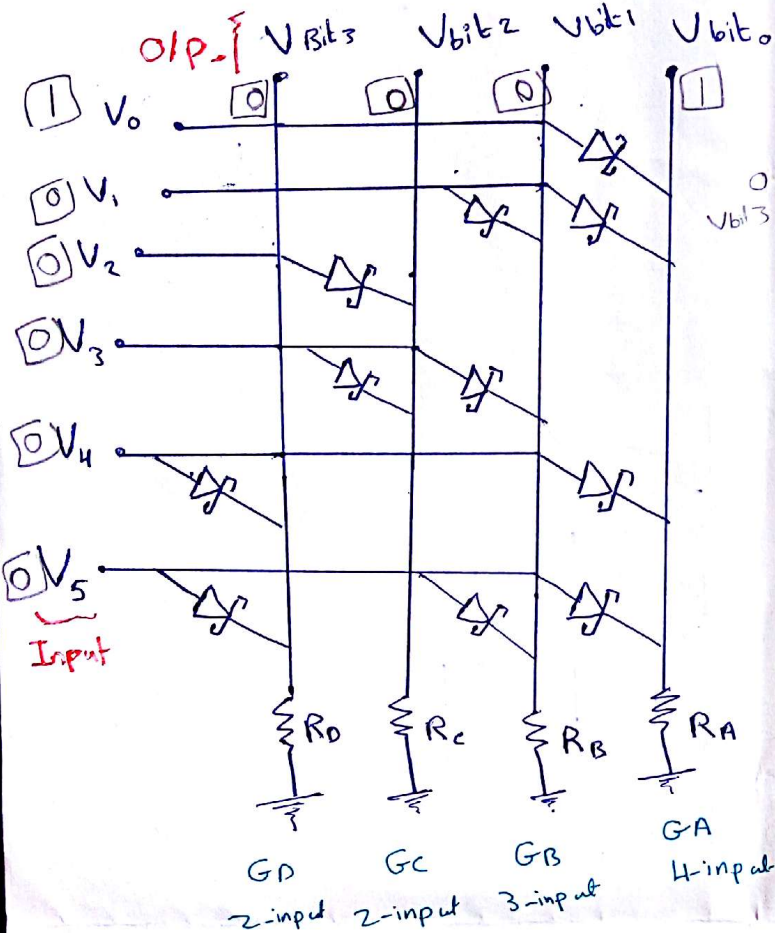 O/P- V Bit 3 Vbit 2 Vbit 1 Vbit 0
0 0 0 1
1 V0
0 V1
0
Vbit3
0 V2
0 V3
0 V4
0 V5
Input
RD RC RB RA
GD GC GB GA
2-input 2-input 3-input 4-input